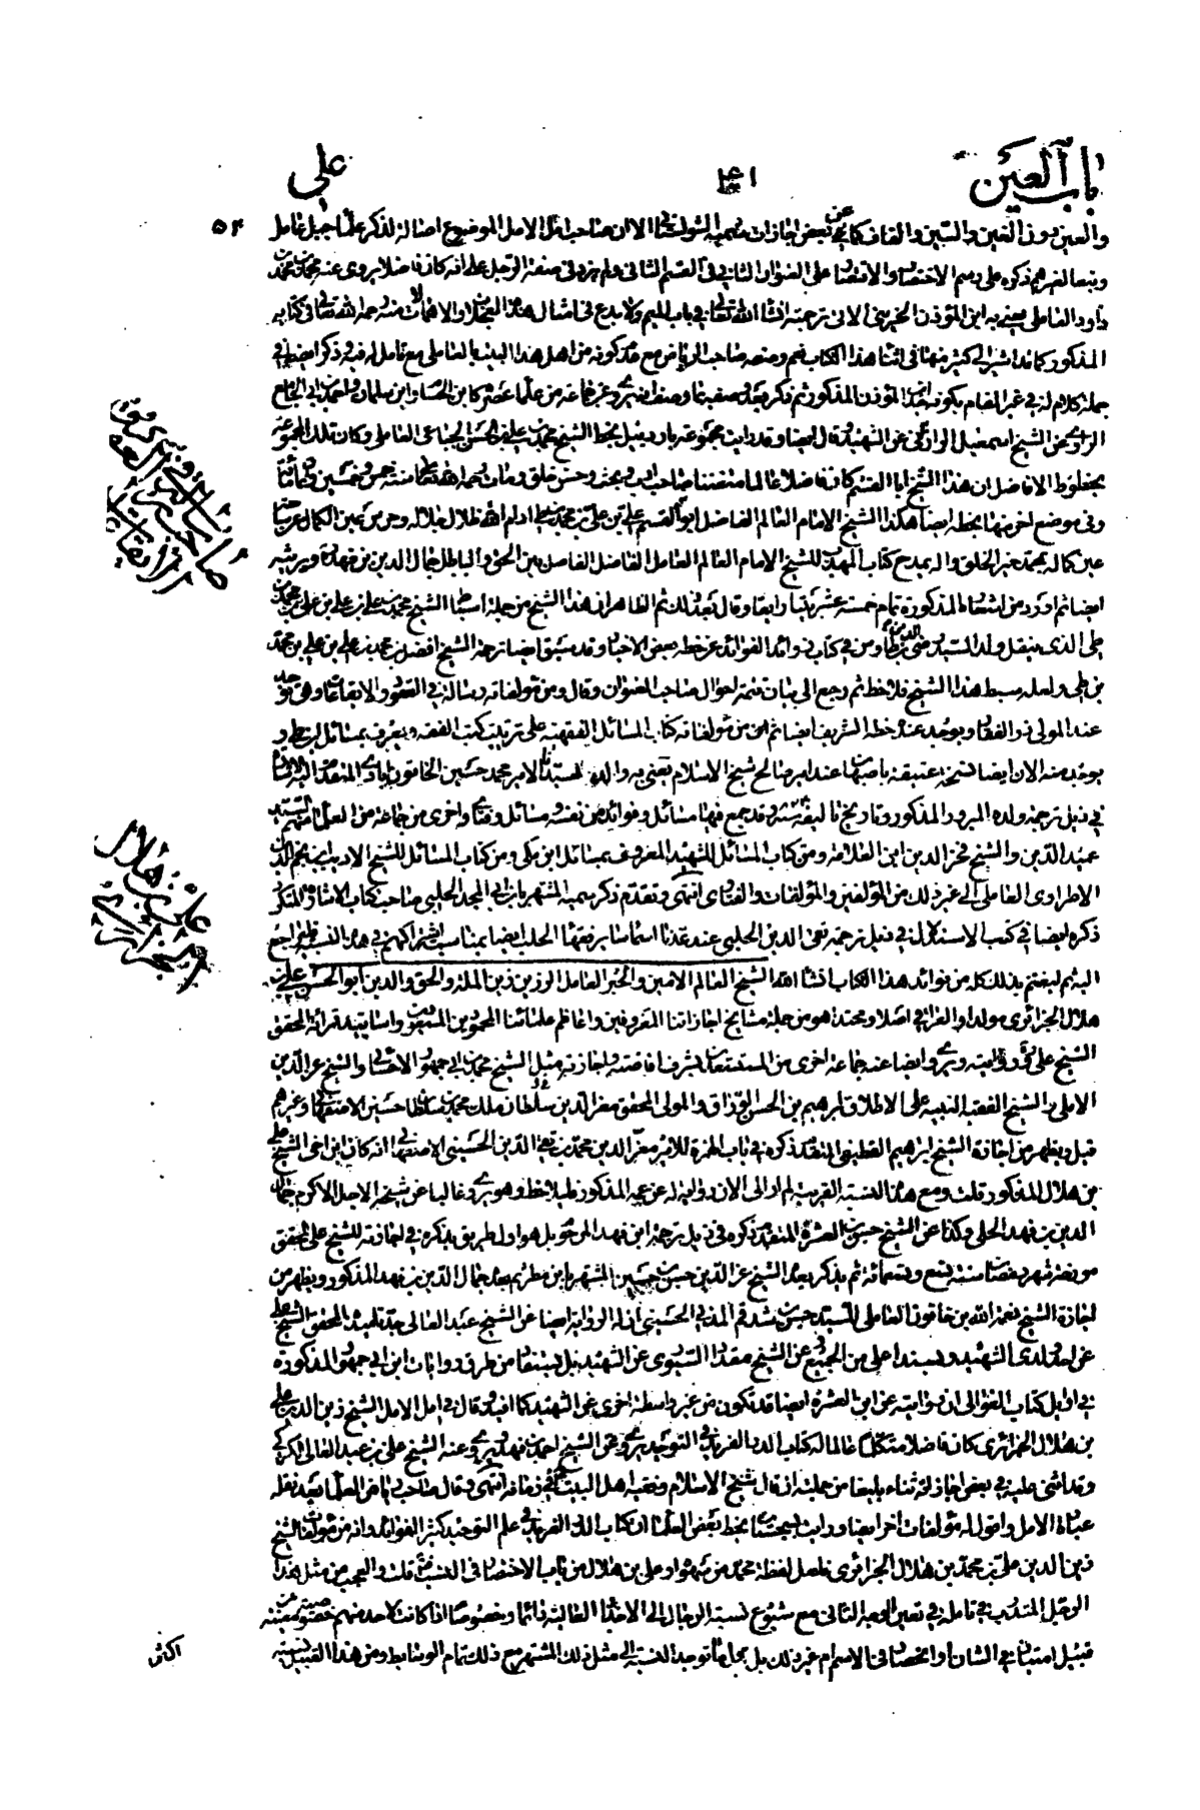 باب العين
علي
والعين دون الغين والسين والقاف كما في بعض اجازات سميه الشولستاني الا ان صاحب امل الامل الموضوع اصالة لذكر علماء جبل عامل
وتبعا لغيرهم ذكره على رسم الاختصار والاقتصار على العنوان الثاني في القسم الثاني ولم يزد في صفة الرجل على انه كان فاضلا يروي عنه محمد بن محمد بن
داود العاملي يعني به ابن المؤذن الجزيني الاتي ترجمته انشاء الله تعالى في باب الميم ولا بدع في امثال هذا
المذكور كما قد اشير الى كثير منها في اثناء هذا الكتاب نعم وصفه صاحب الرياض مع
جملة كلام له في غير المقام بكونه
الراوي عن الشيخ اسمعيل الرازي عن الشهيد وقال ايضا وقد رايت مجموعة باردبيل بخط الشيخ محمد بن علي بن الحسن الجباعي العاملي وكان تلك المجموعة
بخطوط الافاضل ان هذا الشيخ ابا القسم كان فاضلا عالما متفننا صاحب ادب وبحث وحسن خلق ومات رحمه الله تعالى سنة خمس وخمسين وثمانمائة
وفي موضع اخر منها بخطه ايضا هكذا الشيخ الامام العالم الفاضل ابو القسم علي بن علي بن محمد بن طي ادام الله ظلال جلاله وحرس من عين الكمال
عين كماله بمحمد خير الخلق واله يمدح كتاب المهذب للشيخ الامام العالم العامل الفاضل الفاصل بين الحق والباطل جمال الدين بن فهد ويرثيه
ايضا ثم اورد من اشعاره المذكورة تمام خمسة عشر بيتا رايقا وقال بعد ذلك ثم الظاهر ان هذا الشيخ من جملة اسباط الشيخ محمد بن علي بن علي بن محمد بن
طي الذي ينقل ولد السيد رضي الدين بن طاوس في كتاب زوائد الفوائد عن خطه بعض الاخبار وقد سبق ايضا ترجمة الشيخ افضل بن محمد بن علي بن علي بن محمد
بن طي ولعله سبط هذا الشيخ فلاحظ ثم رجع الى بيان تتمة احوال صاحب العنوان وقال ومن مؤلفاته رسالة في العقود والايقاعات
عند المولى ذو الفقار ويوجد عندنا خطه الشريف ايضا ثم ان من مؤلفاته كتاب المسائل الفقهية على ترتيب كتب الفقه ويعرف بمسائل ابن طي و
يوجد منه الان ايضا نسخة عتيقة باصبهان عند امير صالح شيخ الاسلام يعني به والد السيد الامير محمد حسين الخاتون ابادي المتقدم اليه الاشارة
في ذيل ترجمة ولده المبرور المذكور وتاريخ تاليفه وقد جمع فيها مسائل وفوائد من نفسه ومسائل وفتاوى اخرى من جماعة من العلماء منهم السيد
عميد الدين والشيخ فخر الدين ابن العلامة ومن كتاب المسائل للشهيد المعروف بمسائل ابن مكي ومن كتاب المسائل للشيخ الاديب ابن نجم الدين
الاطراوي العاملي الى غير ذلك من المؤلفين والمؤلفات والفتاوى انتهى وتقدم ذكر سميه المشتهر بابن ابي المجد الحلبي صاحب كتاب الاشارة المتكرر
ذكره ايضا في كتب الاستدلال في ذيل ترجمة تقي الدين الحلبي عند عدنا اسماء سائر فقهاء الحلب ايضا بمناسبة اشتراكهم في هذه النسبة فليراجع
اليه ثم ليغتنم بذلك كله من فوائد هذا الكتاب انشاء الله الشيخ العالم الامين والحبر العامل الرزين زين الملة والحق والدين ابو الحسن علي بن
هلال الجزائري مولدا والعراقي اصلا ومحتدا هو من جملة مشايخ اجازاتنا المعروفين واعاظم علمائنا المحمودين المنعوتين واساتيد قرائة المحقق
الشيخ علي ره وروايته ويروي ايضا عنه جماعة اخرى من المستسعدين بشرف افاضته واجازته مثل الشيخ محمد بن ابي جمهور الاحسائي والشيخ عز الدين
الاملي والشيخ الفقيه النبيه على الاطلاق ابراهيم بن الحسن الوراق والمولى المحقق معز الدين بن سلطان ملك محمد بن سلطان حسين الاصفهاني وغيرهم
قيل ويظهر من اجازة الشيخ ابراهيم القطيفي المتقدم ذكره في باب الهمزة للامير معز الدين محمد بن تقي الدين الحسيني الاصفهاني انه كان ابن اخي الشيخ علي
بن هلال المذكور قلت ومع هذه النسبة القريبة لم ار الى الان رواية له عن عمه المذكور فليلاحظ وهو يروي غالبا عن شيخه الاجل الاكرم جمال
الدين بن فهد الحلي وكذا عن الشيخ حسن بن العشرة المتقدم ذكره في ذيل ترجمة ابن فهد المرحوم بل هو اول طريق يذكره في اجازته للشيخ علي المحقق
مورخة شهر رمضان سنة تسع وتسعمائة ثم يذكر بعد الشيخ عز الدين حسن بن حسين المشتهر بابن مطر ثم بعد جمال الدين بن فهد المذكور ويظهر من
اجازة الشيخ نعمة الله بن خاتون العاملي للسيد حسن بن شدقم المدني الحسيني ان له الرواية ايضا عن الشيخ عبد العالي جد تلميذه المحقق الشيخ علي
عن احد ولدي الشهيد وبسند اعلى من الجميع عن الشيخ مقداد السيوري عن الشهيد بل يستفاد من طرق روايات ابن ابي جمهور المذكورة
في اوايل كتاب الغوالي ان روايته عن ابن العشرة ايضا قد تكون من غير واسطة اخرى عن الشهيد كما افيد وقال في امل الامل الشيخ زين الدين علي
بن هلال الجزائري كان فاضلا متكلما عالما له كتاب الدر الفريد في التوحيد يروي عن الشيخ احمد بن فهد ويروي عنه الشيخ علي بن عبد العالي الكركي
وقد اثنى عليه في بعض اجازاته ثناء بليغا من جملته انه قال شيخ الاسلام وفقيه اهل البيت في زمانه انتهى وقال صاحب رياض العلماء بعد نقله
عبارة الامل واقول له مؤلفات اخر ايضا ورايت بسجستان بخط بعض العلماء ان كتاب الدر الفريد في علم التوحيد كثير الفوائد وانه من مؤلفات الشيخ
زين الدين علي بن محمد بن هلال الجزائري فلعل لفظة محمد من سهوه او علي بن هلال من باب الاختصار في النسب قلت والعجب من مثل هذا
الرجل المتدرب في تامله في تعين الوجه الثاني مع شيوع نسبة الرجال الى الاجداد الغالبة دائما وخصوصا اذا كانت لاحد منهم
قبيل امتياز في الشان او انحصار في الاسم ام غير ذلك بل بحيث ما توجد النسبة الى مثل ذلك المشتهر مع ذلك تمام الوسايط ومن هذا القبيل نسبة
اكثر
علي بن هلال
الجزائري